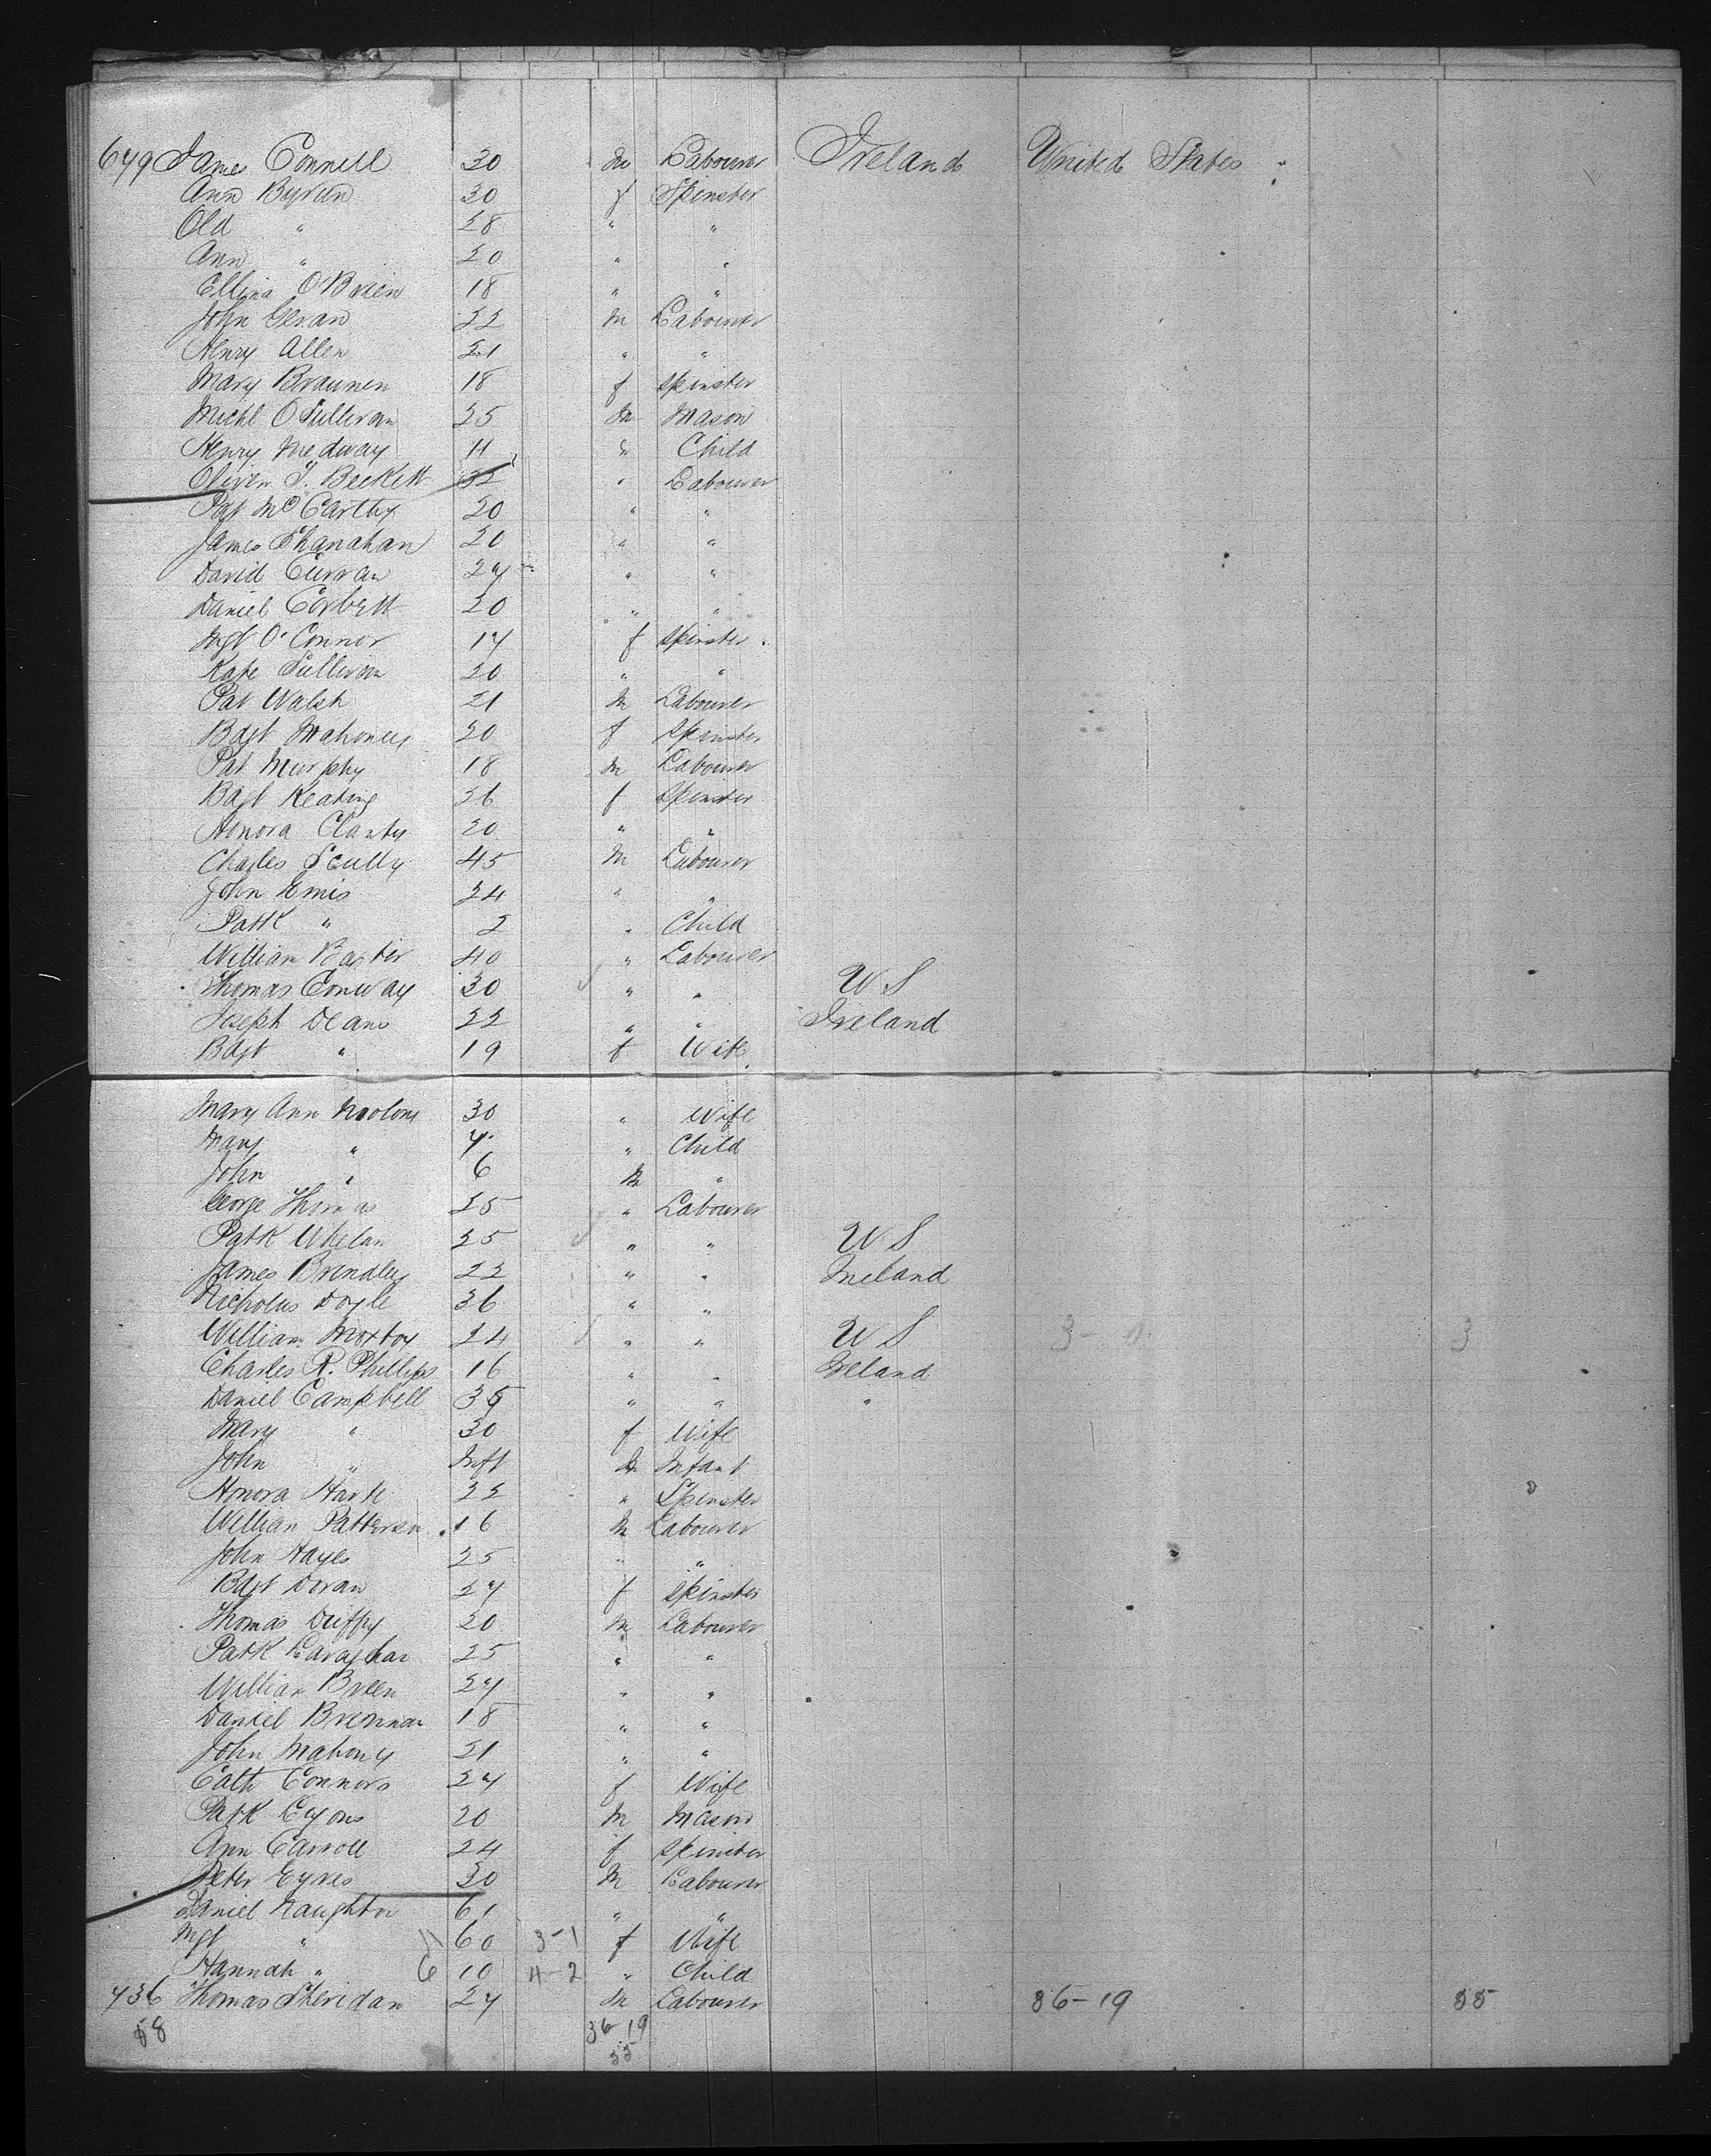 649 James Connell 30 m Labourer Ireland United States
Ann Byreen 30 f Spinster
" 28 " "
Ann " 20 " "
Ellina O'Brien 18 " "
John Geran 22 m Labourer
Henry Allen 21 " "
Mary Braunen 18 f Spinster
Michl O Sullivan 25 m Mason
Henry Medway 11 " Child
Oliver J. Beckett 32 " Labourer
Pat McCarthy 20 " "
James Shanahan 20 " "
David Curran 27 " "
Daniel Corbett 20 " "
Mgt O'Connor 17 f Spinster
Kate Sullivan 20 " "
Pat Walsh 21 m Labourer
Bdgt Mahoney 20 f Spinster
Pat Murphy 18 m Labourer
Bdgt Keating 36 f Spinster
Honora Clanty 20 " "
Charles Scully 45 m Labourer
John Emis 24 " "
Patk " 2 " Child
William Baxter 40 " Labourer
Thomas Conway 30 " " U S
Joseph Deans 22 " " Ireland
Bdgt " 19 f Wife
Mary Ann 30 " Wife
Mary " 7 " Child
John " 6 m "
George Thomas 25 " Labourer
Patk Whelan 35 " " U S
James Brindley 22 " " Ireland
Nicholas Doyle 36 " "
William 24 " " U S 3-0 3
Charles R. Phillips 16 " " Ireland
Daniel Campbell 35 " " "
Mary " 30 f Wife
John " Inft m Infant
Honora Harte 22 " Spinster
William Patterson 16 m Labourer
John Hayes 25 " "
Bdgt Doran 27 f Spinster
Thomas Duffy 20 m Labourer
Patk 25 " "
William Breen 27 " "
Daniel Brennan 18 " "
John Mahony 21 " "
Cath Connors 27 f Wife
Patk Lyons 20 m Mason
Ann Carroll 24 f Spinster
Peter Eyres 30 m Labourer
Daniel Naughton 61 " "
Mgt " 11 60 3-1 f Wife
Hannah " 6 10 4-2 " Child
736 Thomas Sheridan 27 m Labourer 36-19 55
58 36-19
55